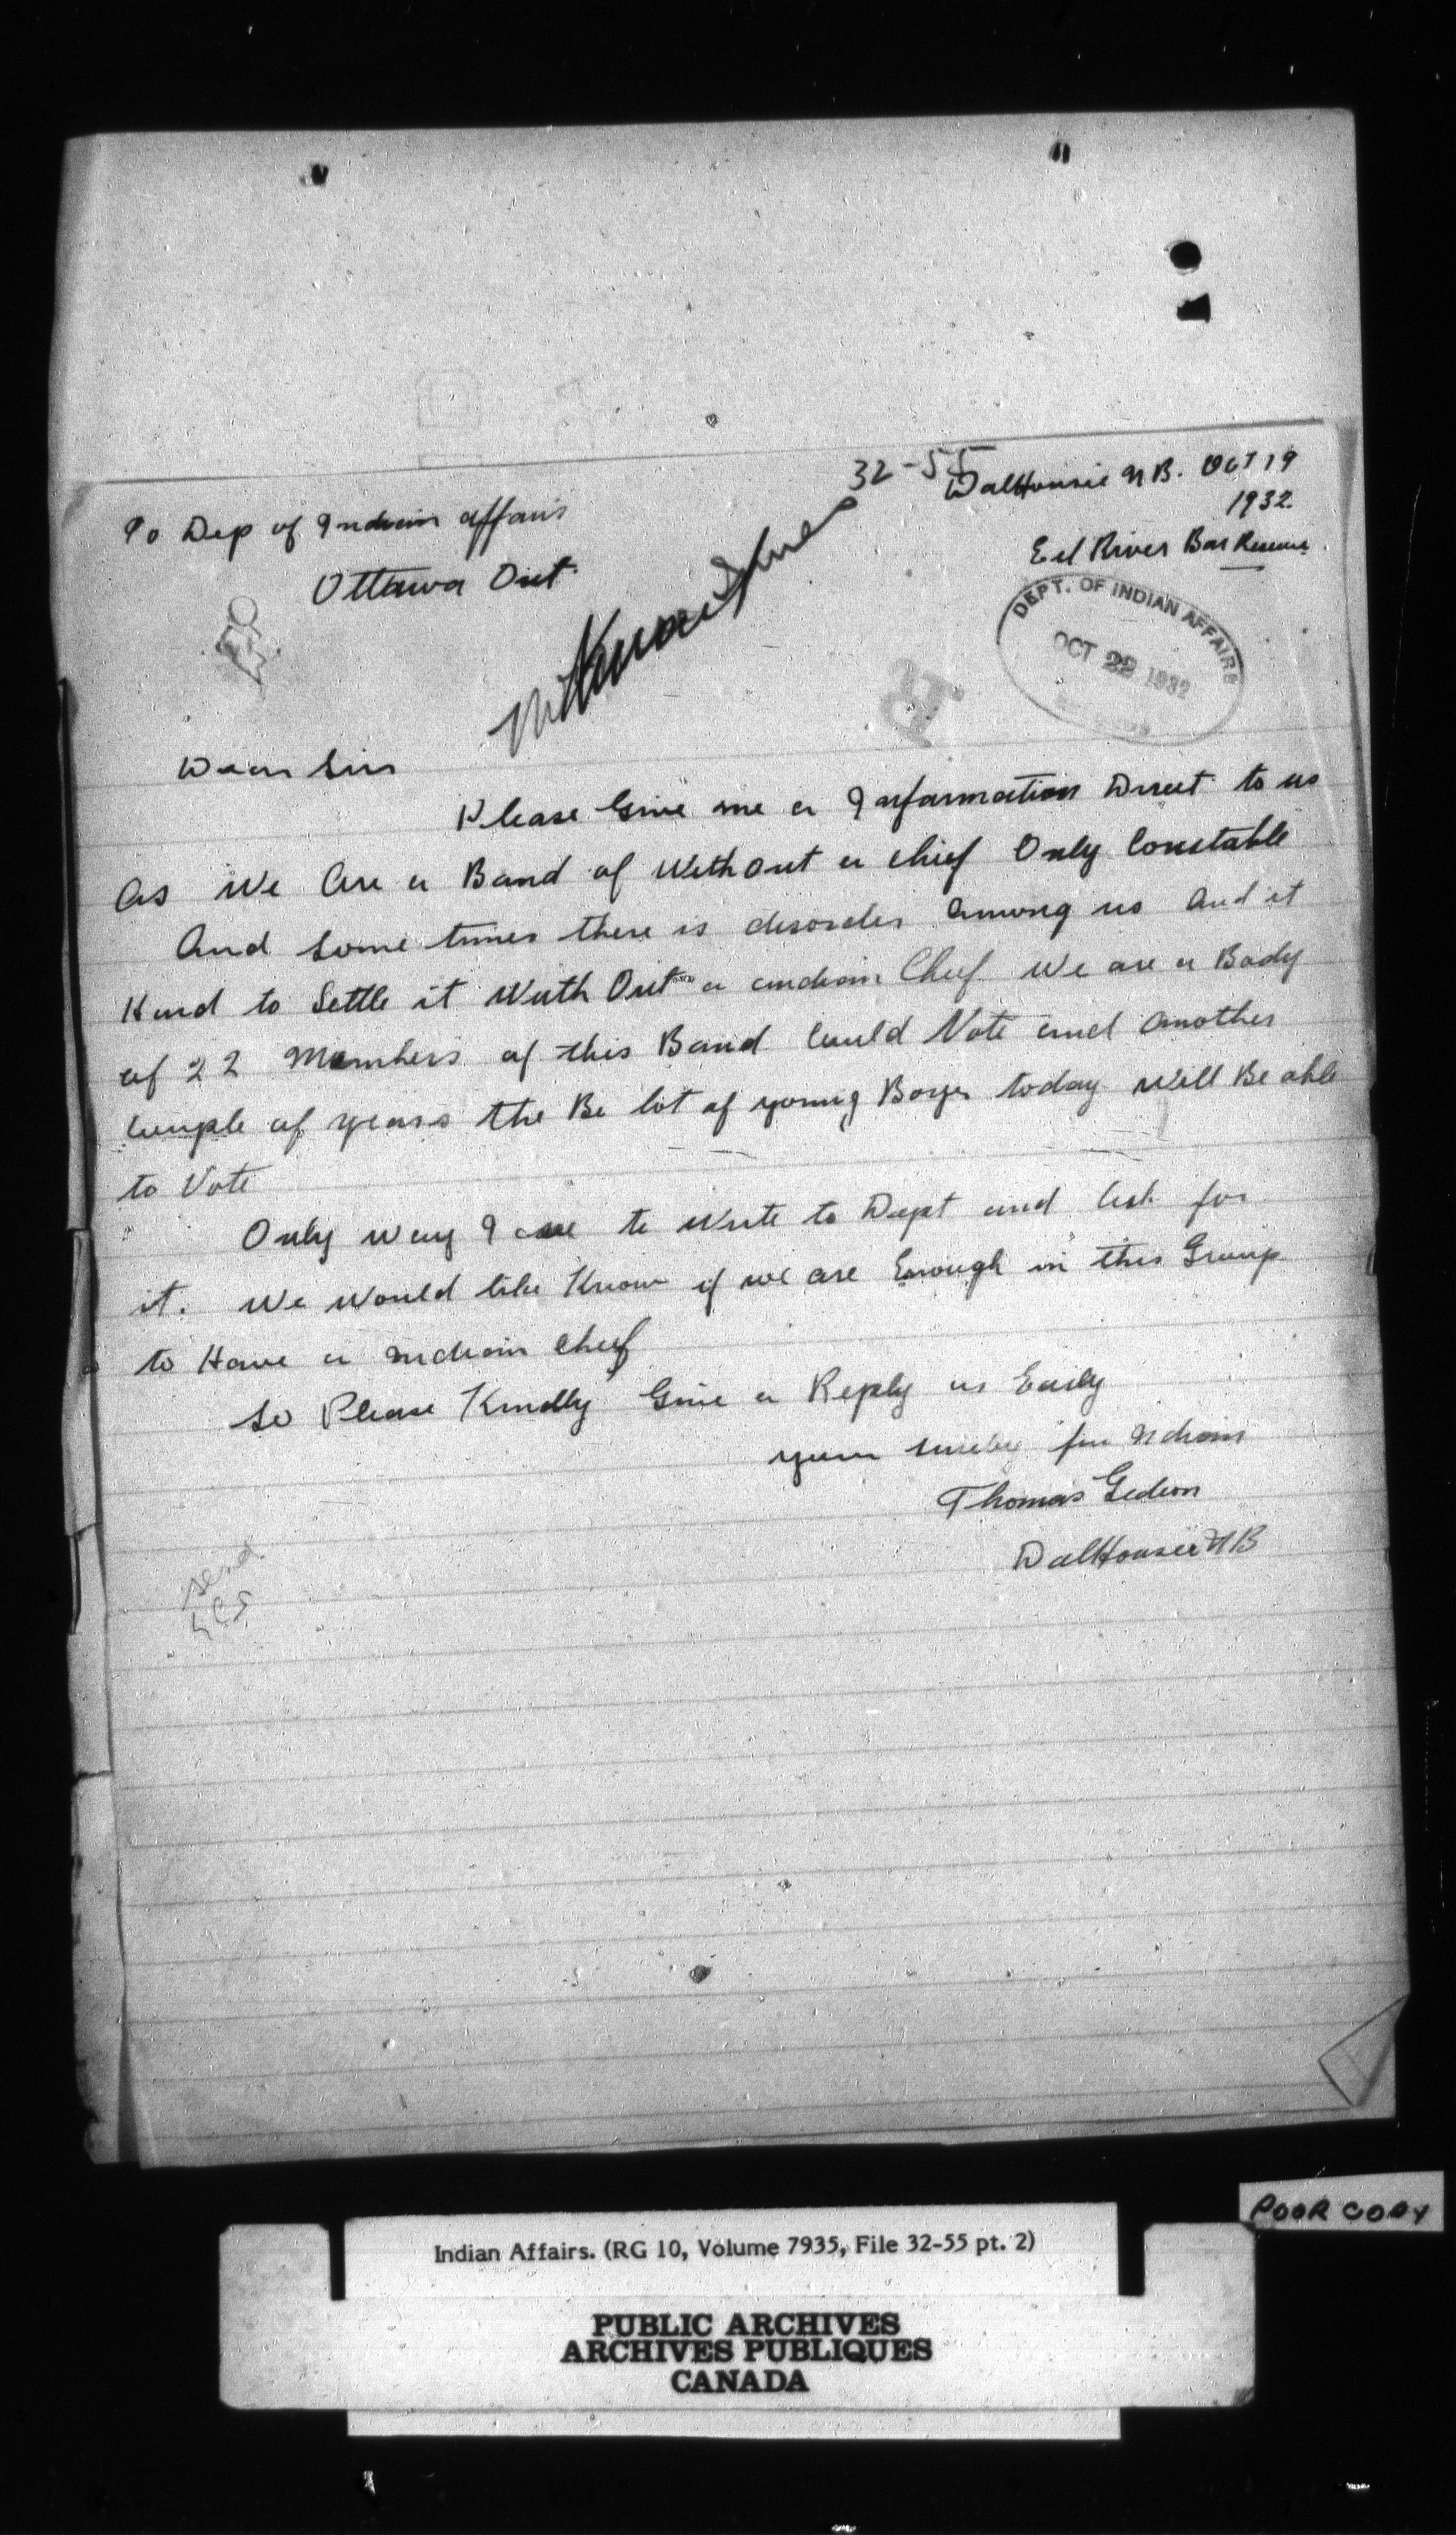 32-55
Dalhousie N B. Oct 19
1932
Eel River Bar Reserve
To Dep of Indian affairs
Ottawa Ont.
DEPT. OF INDIAN AFFAIRS
OCT 22 1932
Dear Sir
Please Give me a Information Direct to us
As We Are a Band of With Out a chief Only Constable
And Some times there is disorder Among us And it
Hard to Settle it With Out a indian Chief We are a Body
of 22 Members of this Band Could Vote and Another
Couple of years the Be lot of young Boys today Will Be able
to Vote
Only Way I to Write to Dept and Ask for
it. We Would like Know if we are Enough in this Group
to Have a indian chief
So Please Kindly Give a Reply as Early
your for ndians
Thomas Gedeon
DalHousie N B
send
POOR COPY
Indian Affairs. (RG 10, Volume 7935, File 32-55 pt. 2)
PUBLIC ARCHIVES
ARCHIVES PUBLIQUES
CANADA